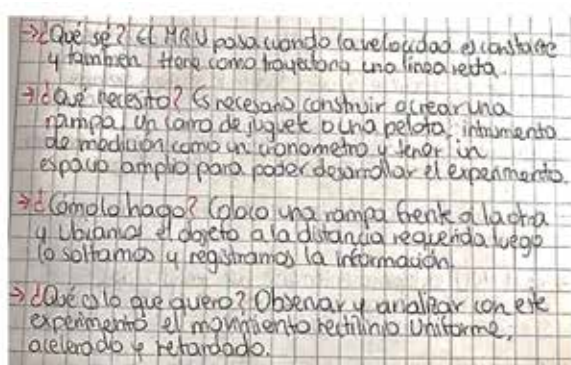 →¿Qué sé? El MRU pasa cuando la velocidad es constante
y tambien tiene como trayectoria una linea recta.
→¿Qué necesito? Es necesario construir o crear una
rampa, un carro de juguete o una pelota, intrumento
de medición como un cronometro y tener un
espacio amplio para poder desarrollar el experimento.
→¿Cómo lo hago? Coloco una rampa frente a la otra
y ubicamos el objeto a la distancia requerida luego
lo soltamos y registramos la información.
→¿Qué es lo que quero? Observar y analizar con este
experimento el movimiento rectilinio uniforme,
acelerado y retardado.